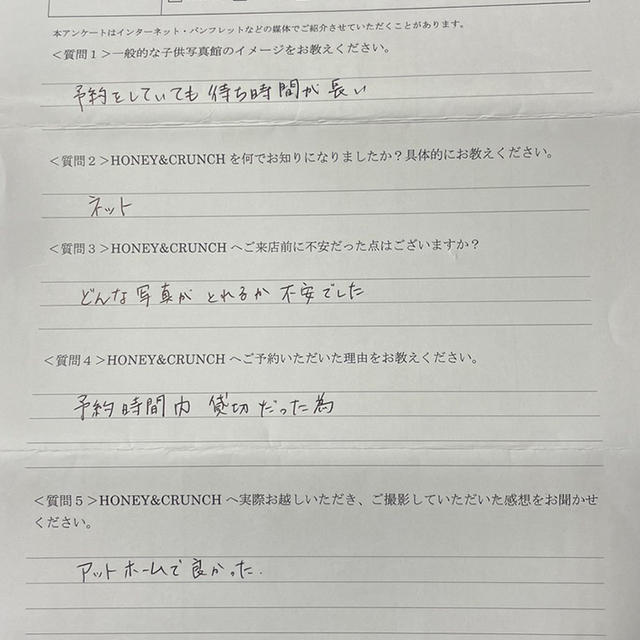 本アンケートはインターネット・パンフレットなどの媒体でご紹介させていただくことがあります。
＜質問１＞一般的な子供写真館のイメージをお教えください。
予約をしていても 待ち時間が長い
＜質問２＞HONEY&CRUNCH を何でお知りになりましたか？具体的にお教えください。
ネット
＜質問３＞HONEY&CRUNCH へご来店前に不安だった点はございますか？
どんな写真が とれるか 不安でした
＜質問４＞HONEY&CRUNCH へご予約いただいた理由をお教えください。
予約時間内 貸切だった為
＜質問５＞HONEY&CRUNCH へ実際お越しいただき、ご撮影していただいた感想をお聞かせ
ください。
アットホームで良かった.